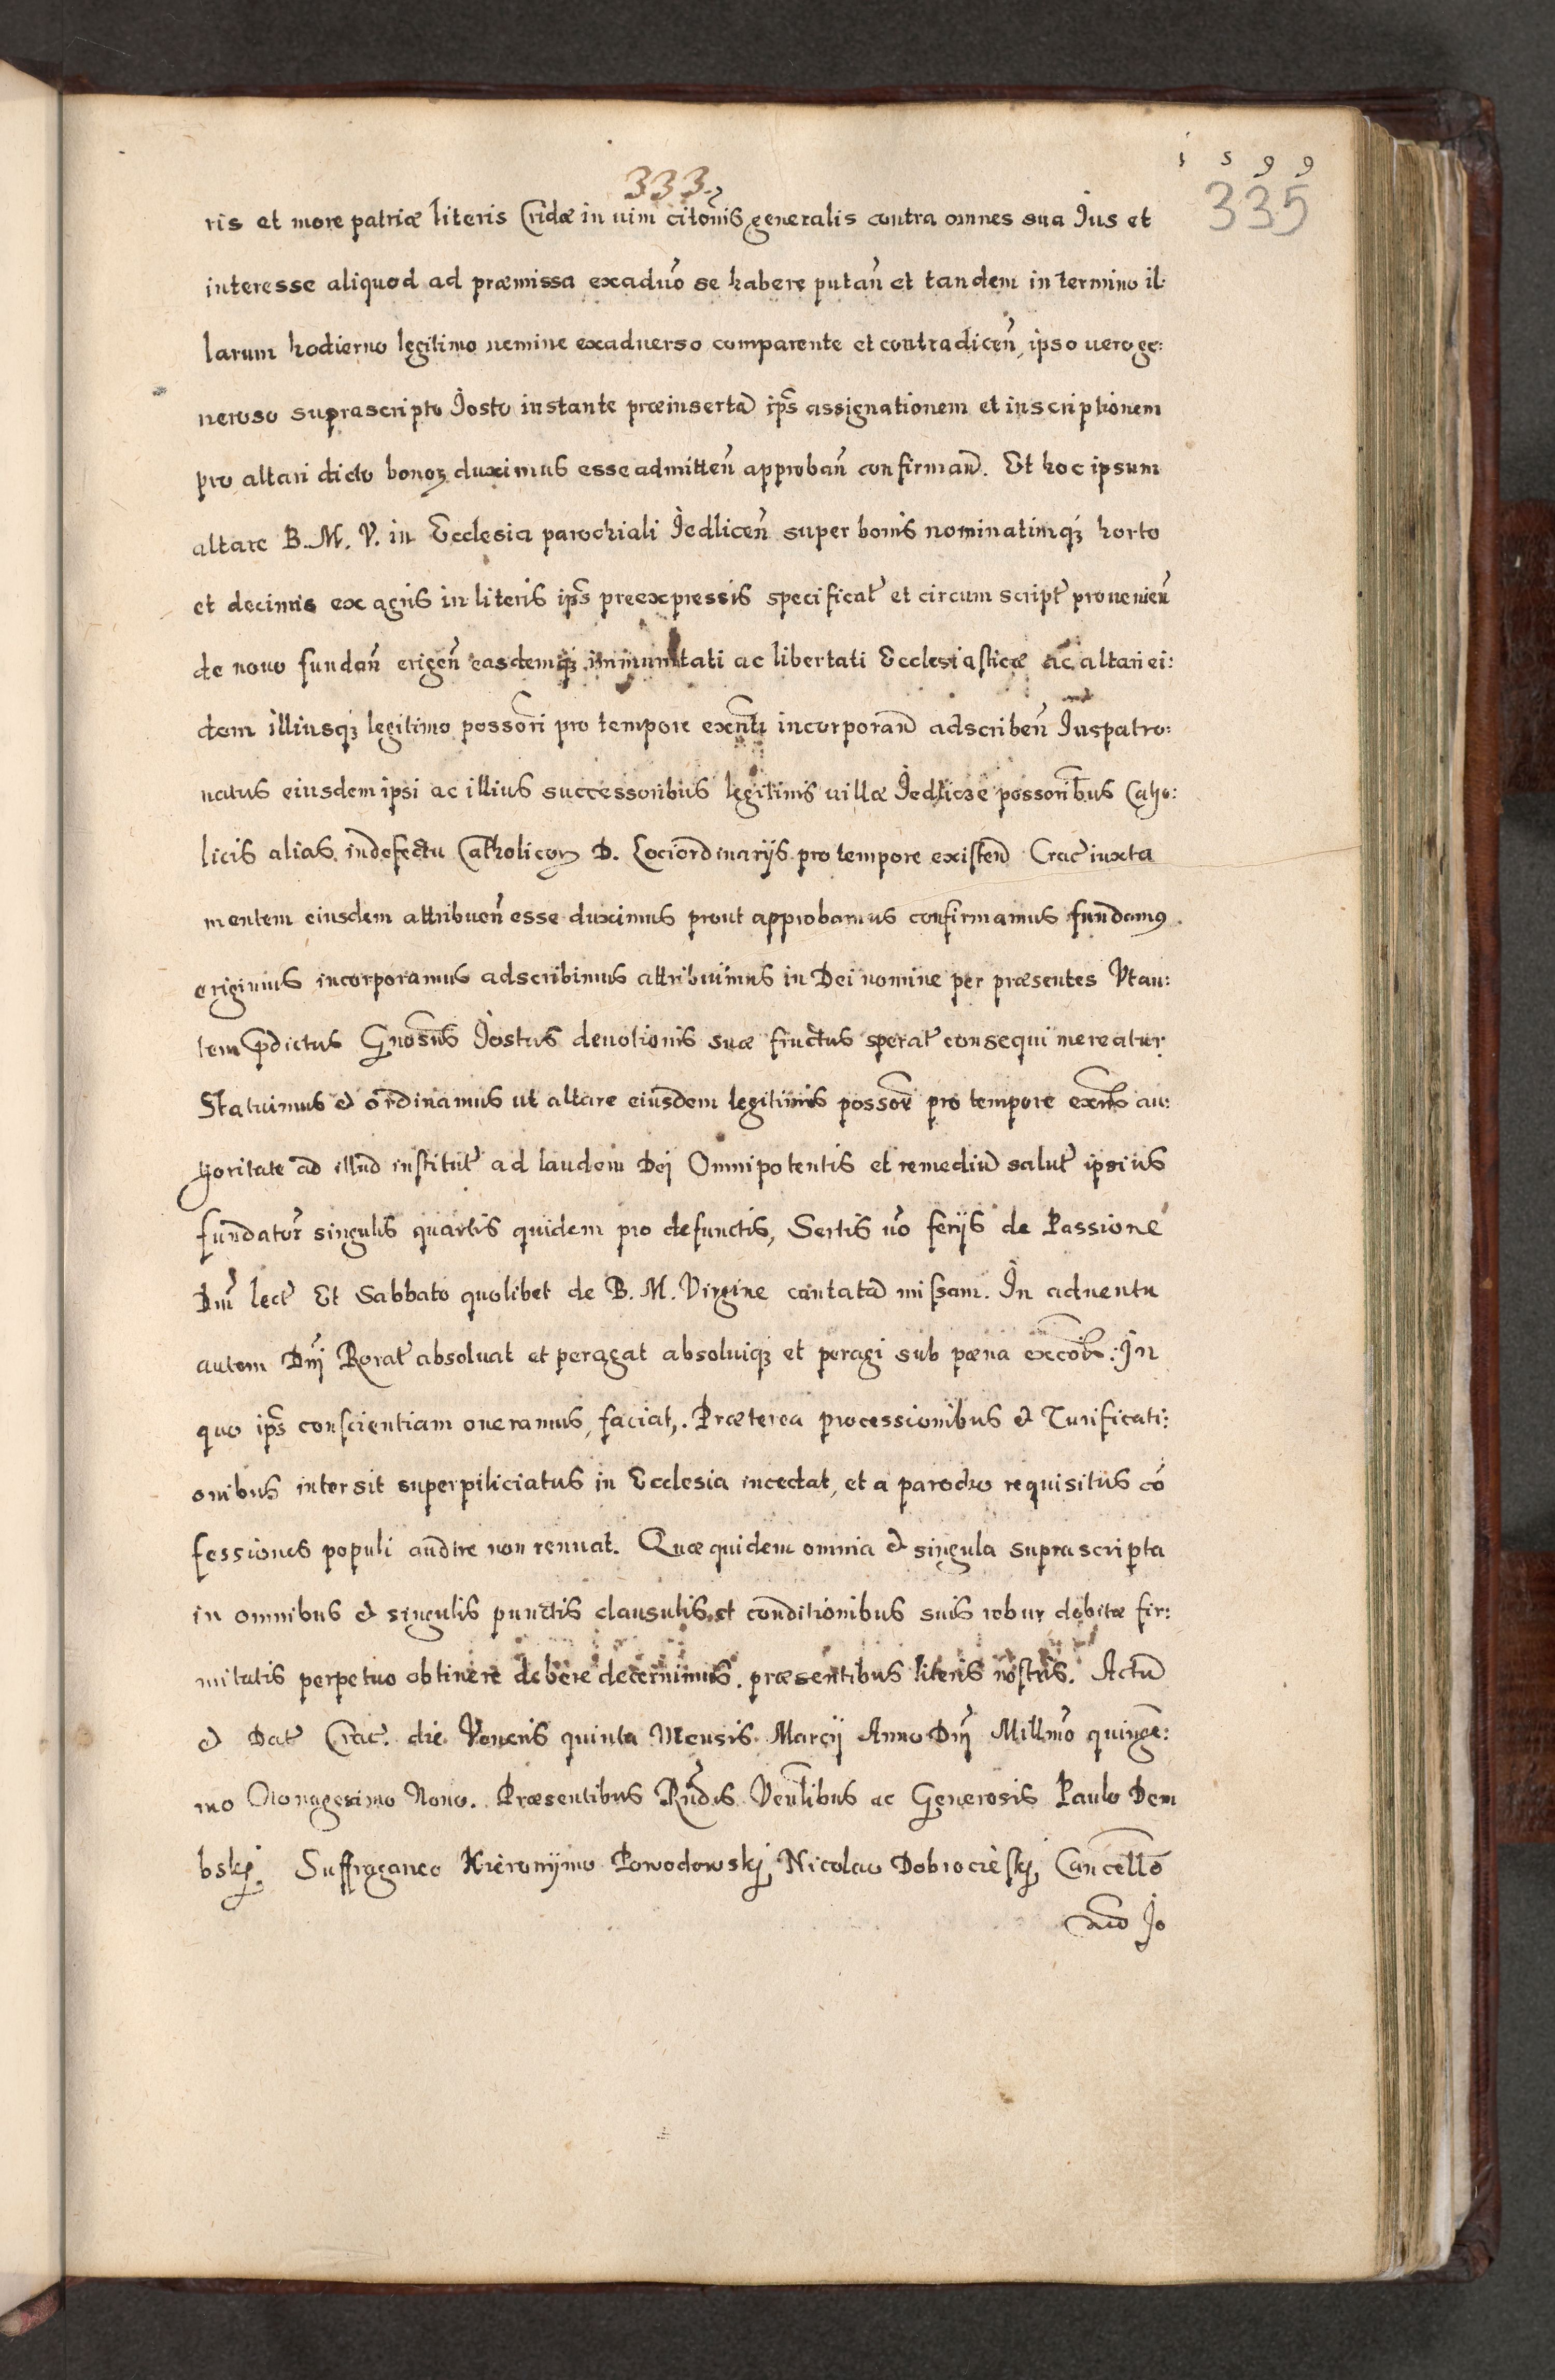 1599
333
335
ris et more patriæ literis Cridæ in vim citonis generalis contra omnes sua Ius et
interesse aliquod ad præmissa exaduo se habere putan et tandem in termino il:
larum hodierno legitimo nemine exaduerso comparente et contradicen, ipso vero ge:
neroso suprascripto Josto instante præinserta ips assignationem et inscriptionem
pro altari dicto bonorz duximus esse admitten approban confirman. Et hoc ipsum
altare B. M. V. in Ecclesia parochiali Jedlicen super bonis nominatimqz horto
et decimis ex agris in literis ips preexpressis specificat et circum script prouenien
de nouo fundan erigen easdemqz immunitati ac libertati Ecclesiasticæ ac altari ei:
dem illiusqz legitimo possori pro tempore exnti incorporan adscriben Iuspatro:
natus eiusdem ipsi ac illius successoribus legitimis villæ Jedlicze possoribus Catho:
licis alias in defectu Catholicorz D. Lociordinarijs pro tempore existen Crac iuxta
mentem eiusdem attribuen esse duximus prout approbamus confirmamus fundamus
erigimus incorporamus adscribimus attribuimus in Dei nomine per præsentes Vt au:
tem pdictus Gnosus Jostus deuotionis suæ fructus sperat consequi mereatur.
Statuimus et ordinamus ut altare eiusdem legitimis possor pro tempore exns au:
thoritate ad illud institut ad laudem Dej Omnipotentis et remediu salut ipsius
fundator singulis quartis quidem pro defunctis, Sextis vo ferijs de Passione
Dni lect Et Sabbato quolibet de B. M. Virgine cantata missam. In aduentu
autem Dnj Rorat absoluat et peragat absoluiqz et peragi sub pæna excois: In
quo ips conscientiam oneramus, faciat. Præterea processionibus et Turificati:
onibus intersit superpiliciatus in Ecclesia incedat, et a parocho requisitus co
fessiones populi audire non renuat. Quæ quidem omnia et singula suprascripta
in omnibus et singulis punctis clausulis et conditionibus suis robur debitæ fir:
mitatis perpetuo obtinere debere decernimus. præsentibus literis nostris. Actu
et Dat Crac. die Veneris quinta Mensis Marcij Anno Dnj Millmo quinge:
mo Nonagesimo Nono. Præsentibus Rndis Venlibus ac Generosis Paulo Dem
bskj Suffraganeo Hieronijmo Powodowskj Nicolao Dobrocieskj Cancello
Jo